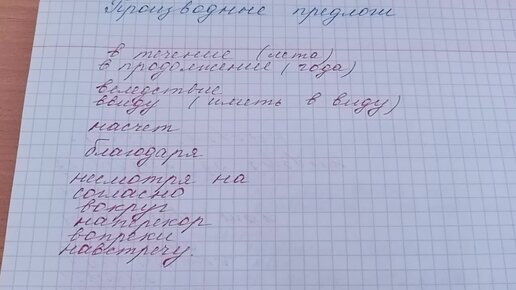 Производные предлоги
в течение (лета)
в продолжение (года)
вследствие
ввиду (иметь в виду)
насчет
благодаря
несмотря на
согласно
вокруг
наперекор
вопреки
навстречу.